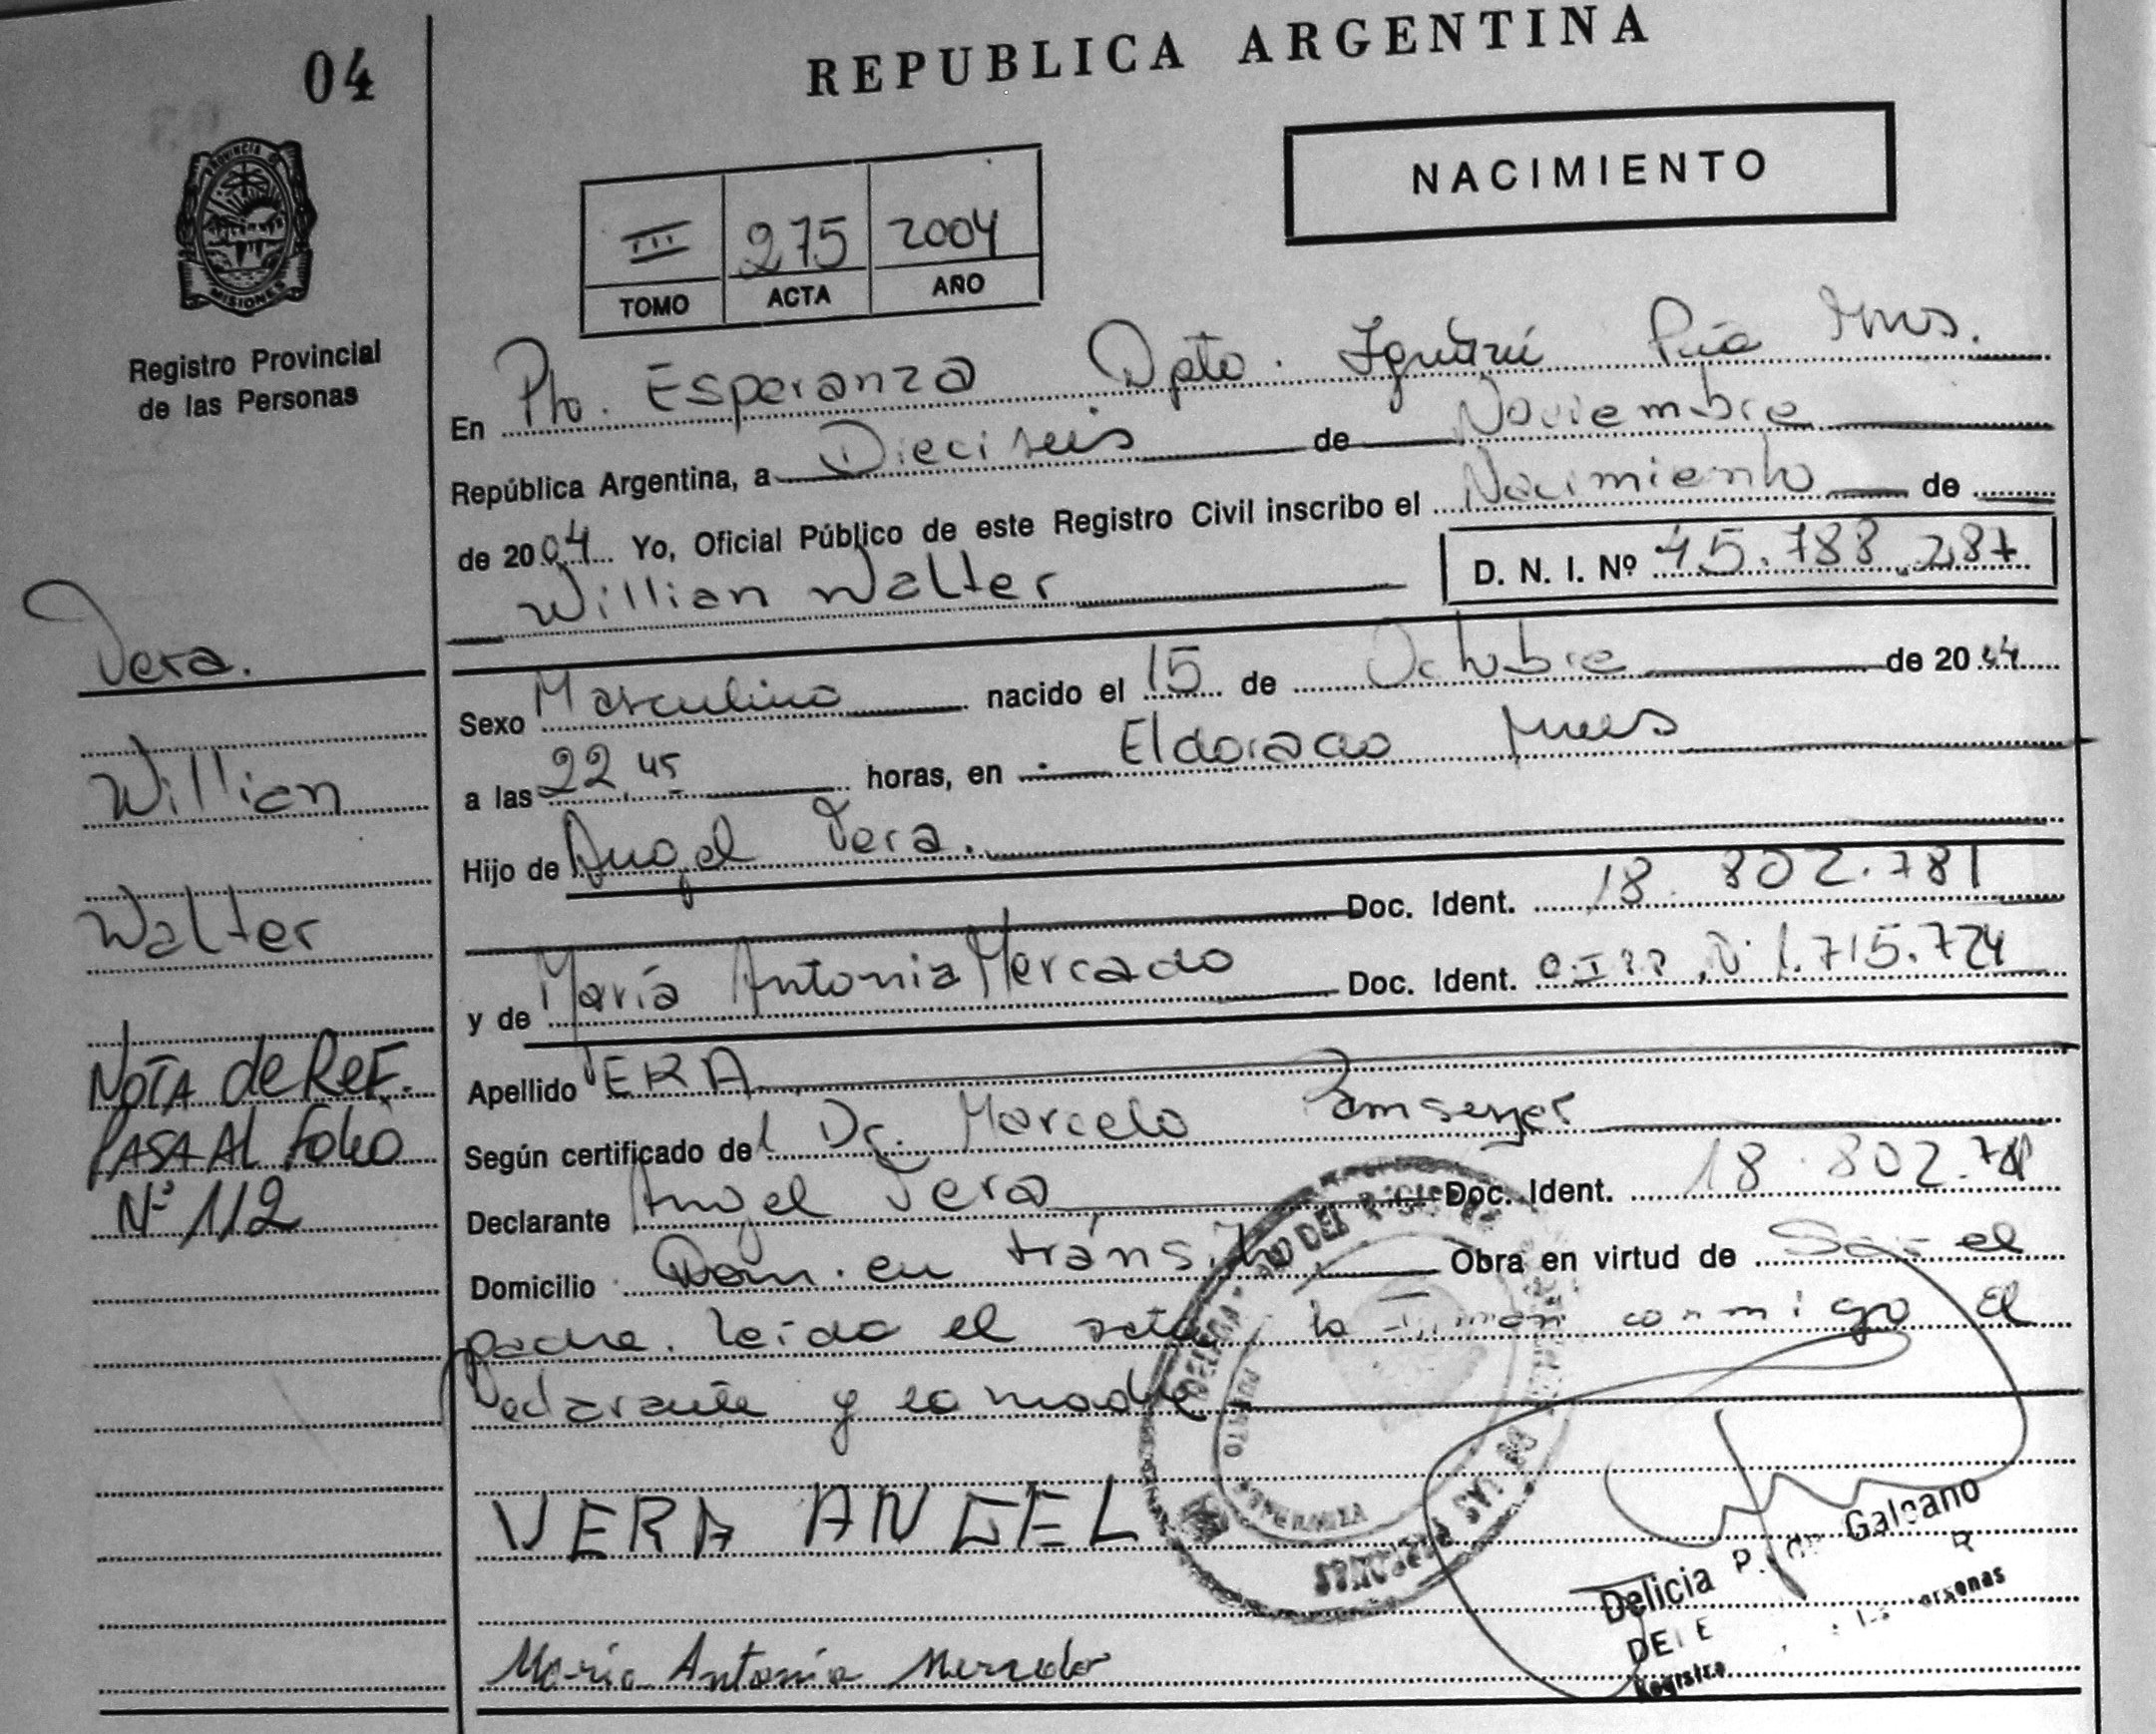 04
REPUBLICA ARGENTINA
NACIMIENTO
III 275 2004
TOMO ACTA AÑO
PROVINCIA D
MISIONES
Registro Provincial
de las Personas
En Pto. Esperanza Dpto. Iguazú Pcia Mnes.
República Argentina, a Dieciseis de Noviembre
de 2004 Yo, Oficial Público de este Registro Civil inscribo el Nacimiento de
D. N. I. Nº 45.788.287
Willian Walter
Sexo Masculino nacido el 15 de Octubre de 2004
a las 22,45 horas, en Eldorado Mnes
Hijo de Angel Vera.
Doc. Ident. 18.802.781
y de María Antonia Mercado Doc. Ident. Nº 1.715.724
Apellido VERA
Según certificado del Dr. Marcelo
Declarante Angel Vera Doc. Ident. 18.802.781
Domicilio Dom. en tránsito Obra en virtud de Ser el
padre. Leida el acta, la firman conmigo el
Declarante y la madre
VERA ANGEL
Maria Antonia Mercado
Vera.
Willian
Walter
NOTA de ReF.
PASA Al Folio
Nº 112
DEL
DE LAS PERSONAS
PUERTO ESPERANZA
Delicia P. de Galeano
Registro personas